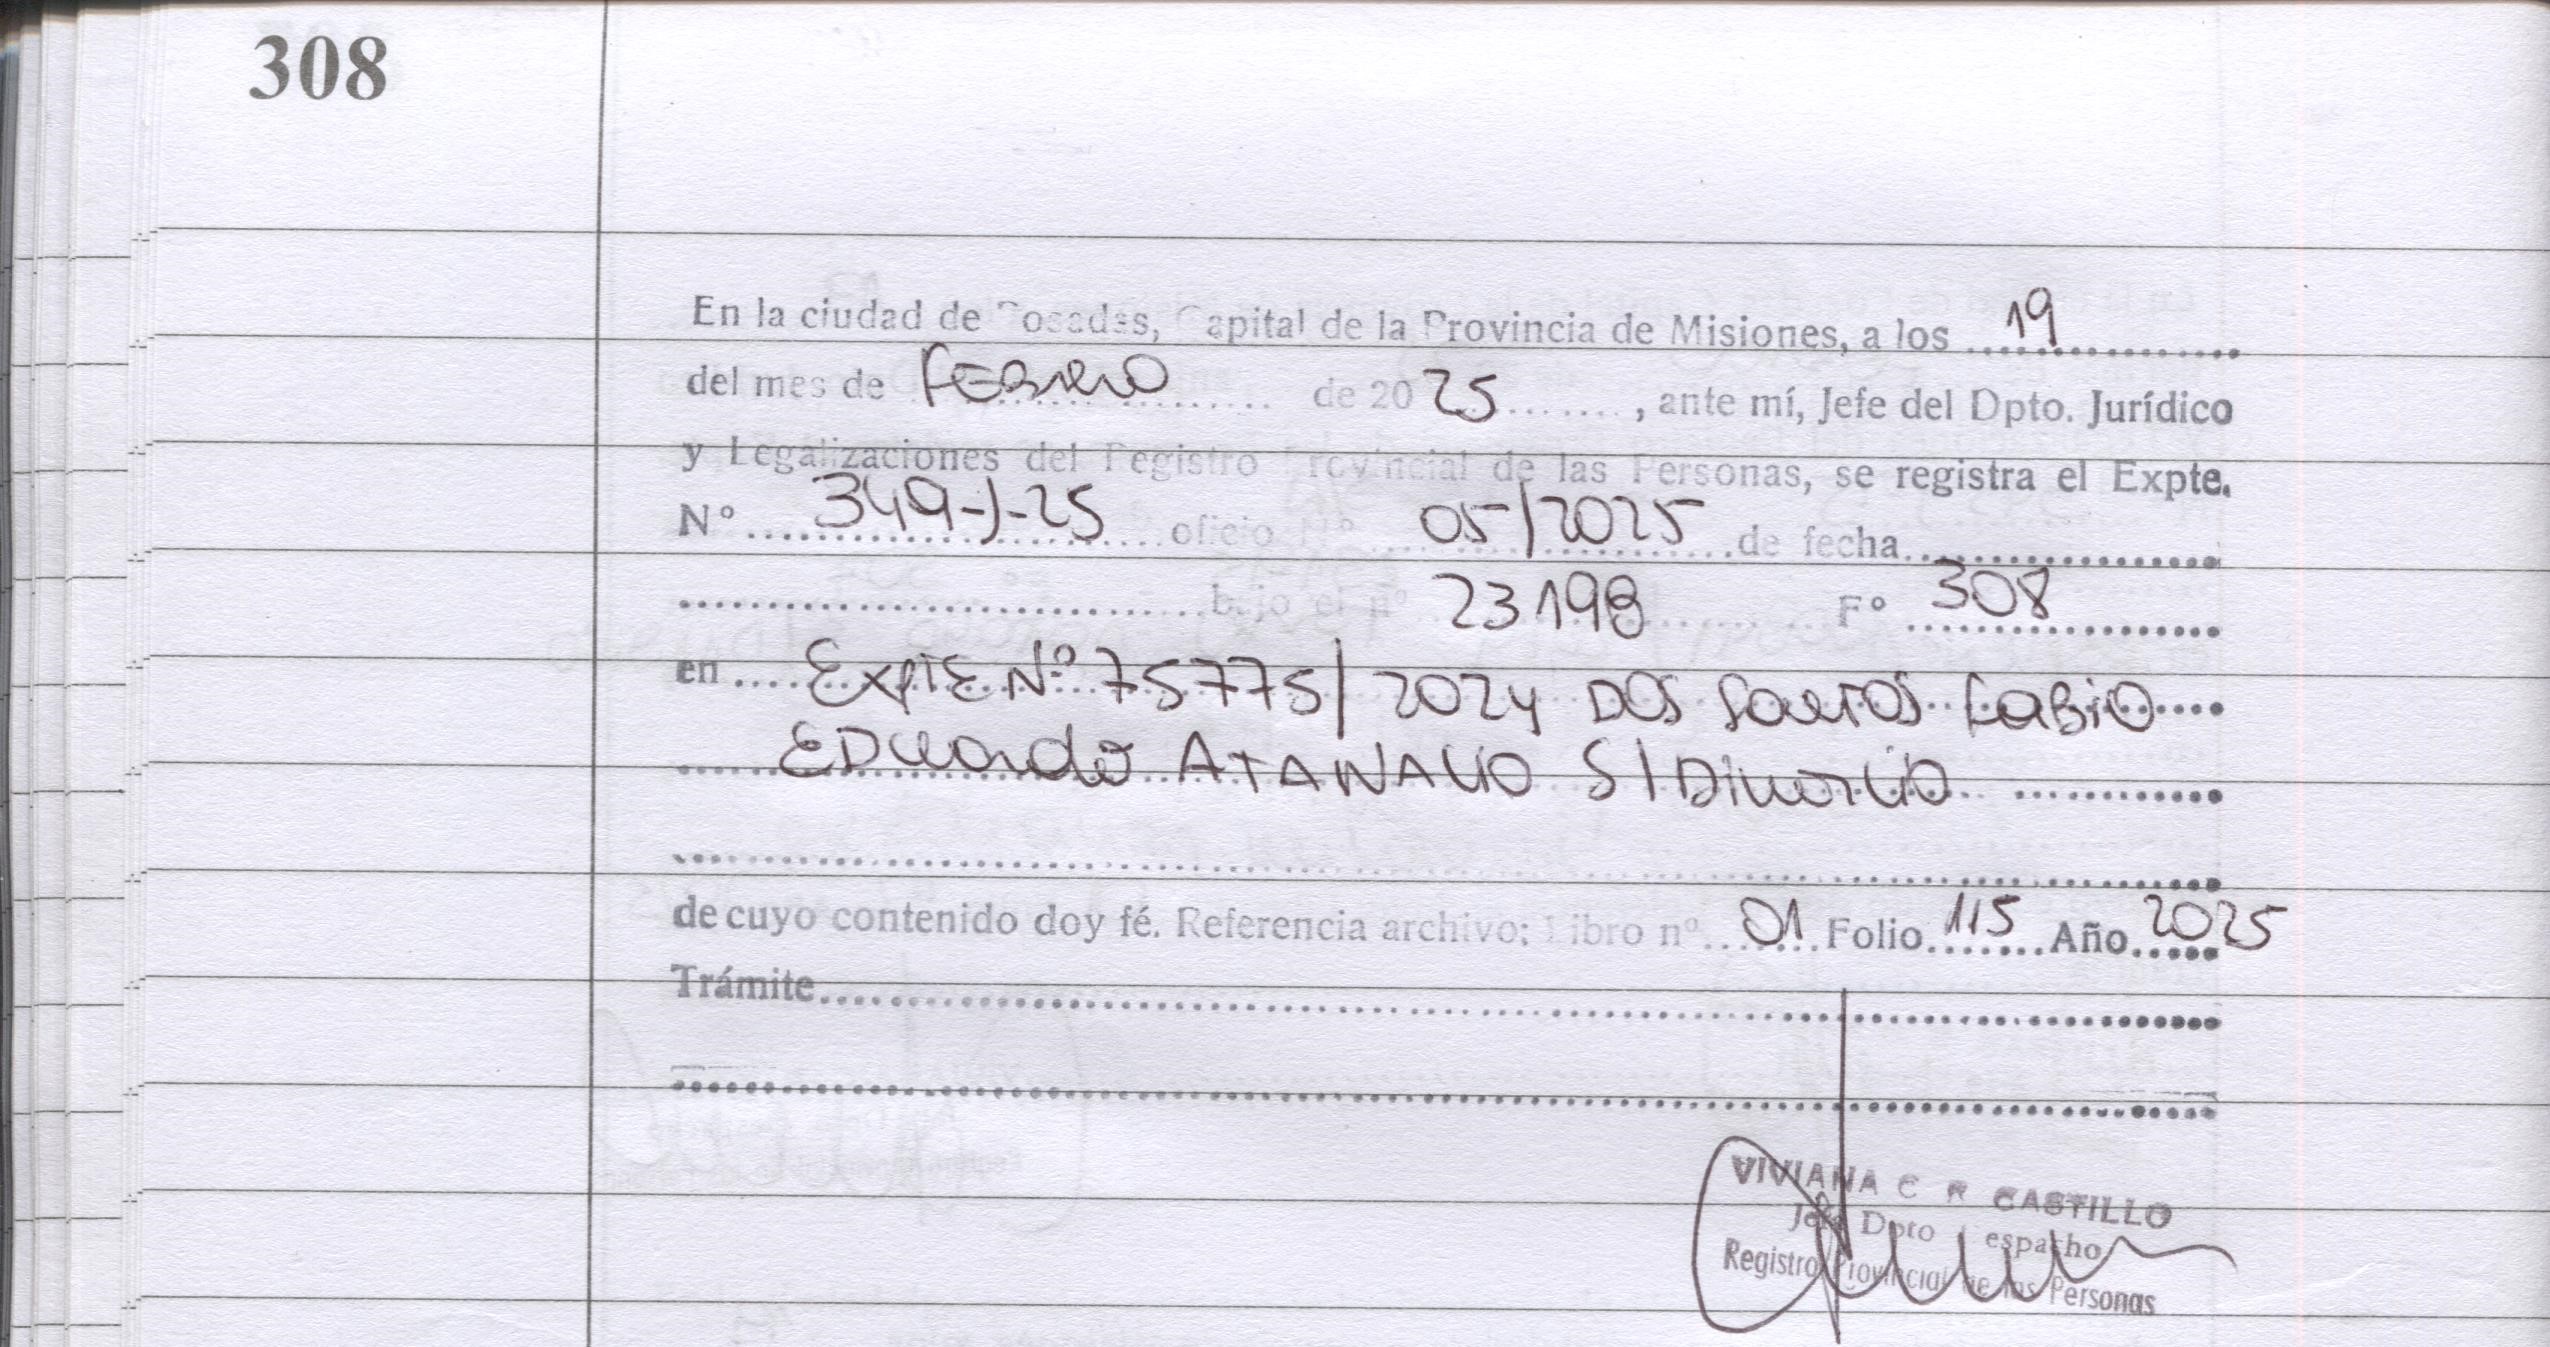 308
En la ciudad de Posadas, Capital de la Provincia de Misiones, a los 19
del mes de Febrero de 2025, ante mí, Jefe del Dpto. Jurídico
y Legalizaciones del Registro Provincial de las Personas, se registra el Expte.
Nº 349-J-25 oficio Nº 05/2025 de fecha
bajo el nº 23198 Fº 308
en Expte Nº 75775/2024 Dos Santos Fabio
Eduardo Atanacio S/Divorcio
de cuyo contenido doy fé. Referencia archivo: Libro nº 01 Folio 115 Año 2025
Trámite
VIVIANA C R CASTILLO
Jefe Dpto Despacho
Registro Provincial de las Personas